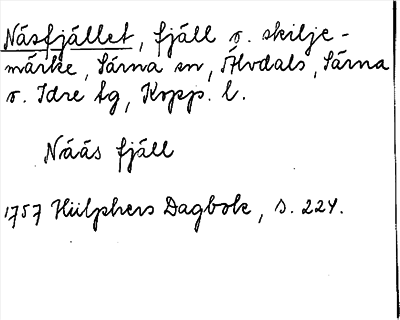 Näsfjället, fjäll o. skilje-
märke, Särna sn, Älvdals, Särna
o. Idre tg, Kopp. l.
Nääs fjäll
1757 Hülphers Dagbok, s. 224.